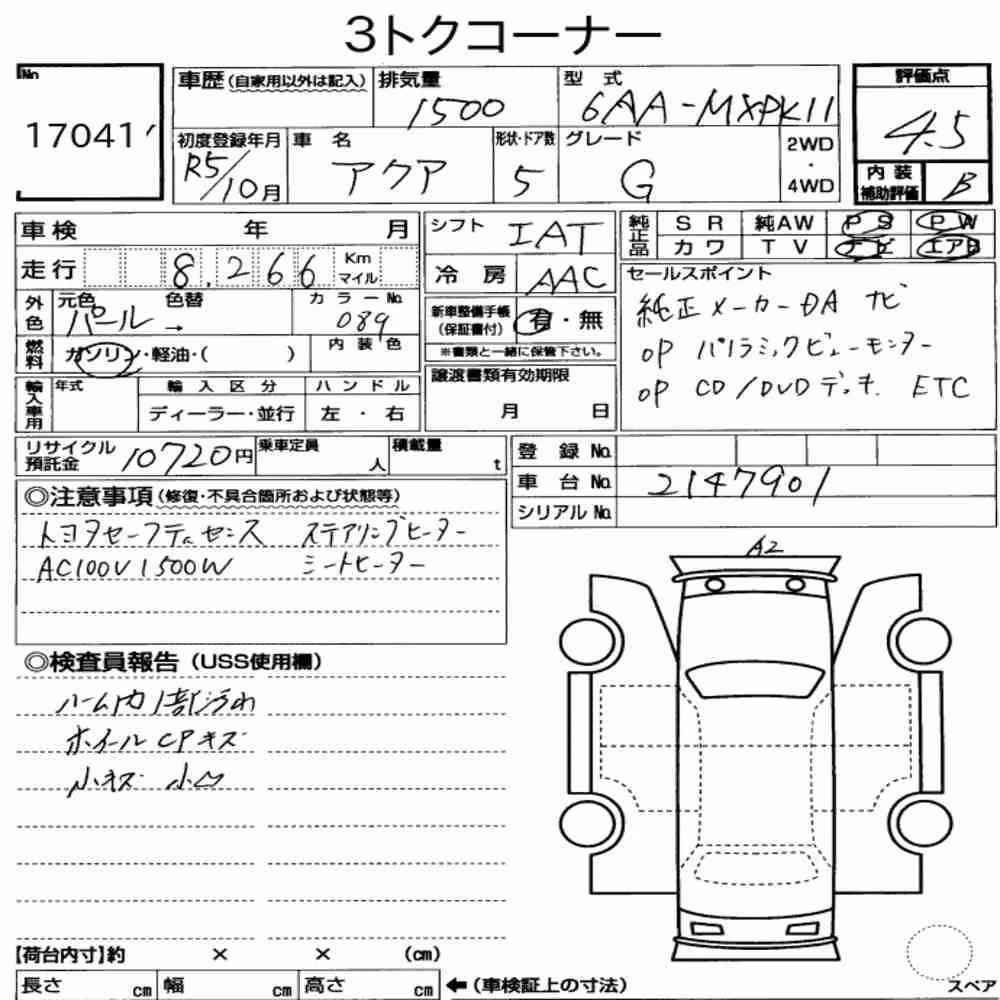 3トクコーナー
No
17041
車歴(自家用以外は記入)
排気量
1500
型 式
6AA-MXPK11
評価点
4.5
初度登録年月
R5/10月
車 名
アクア
形状・ドア数
5
グレード
G
2WD
・
4WD
内 装
補助評価
B
車検 年 月
シフト
IAT
純正品
SR 純AW PS PW
カワ TV ナビ エアB
走行 8,266 Km マイル
冷 房 AAC
セールスポイント
純正メーカーDA ナビ
OP パノラミックビューモニター
OP CD/DVDデッキ ETC
外色
元色 色替
パール →
カラーNo.
089
新車整備手帳
(保証書付)
有・無
※書類と一緒に保管下さい。
燃料
ガソリン・軽油・( )
内 装 色
輸入車用
年式
輸 入 区 分
ディーラー・並行
ハ ン ド ル
左 ・ 右
譲渡書類有効期限
月 日
リサイクル
預託金
10720円
乗車定員
人
積載量
t
登 録 No.
車 台 No. 2147901
シリアル No.
◎注意事項(修復・不具合箇所および状態等)
トヨタセーフティセンス ステアリングヒーター
AC100V1500W シートヒーター
A2
◎検査員報告(USS使用欄)
ルーム内1部汚れ
ホイールCPキズ
小キズ 小凹
【荷台内寸】約 × × (cm)
長さ cm 幅 cm 高さ cm
←(車検証上の寸法)
スペア